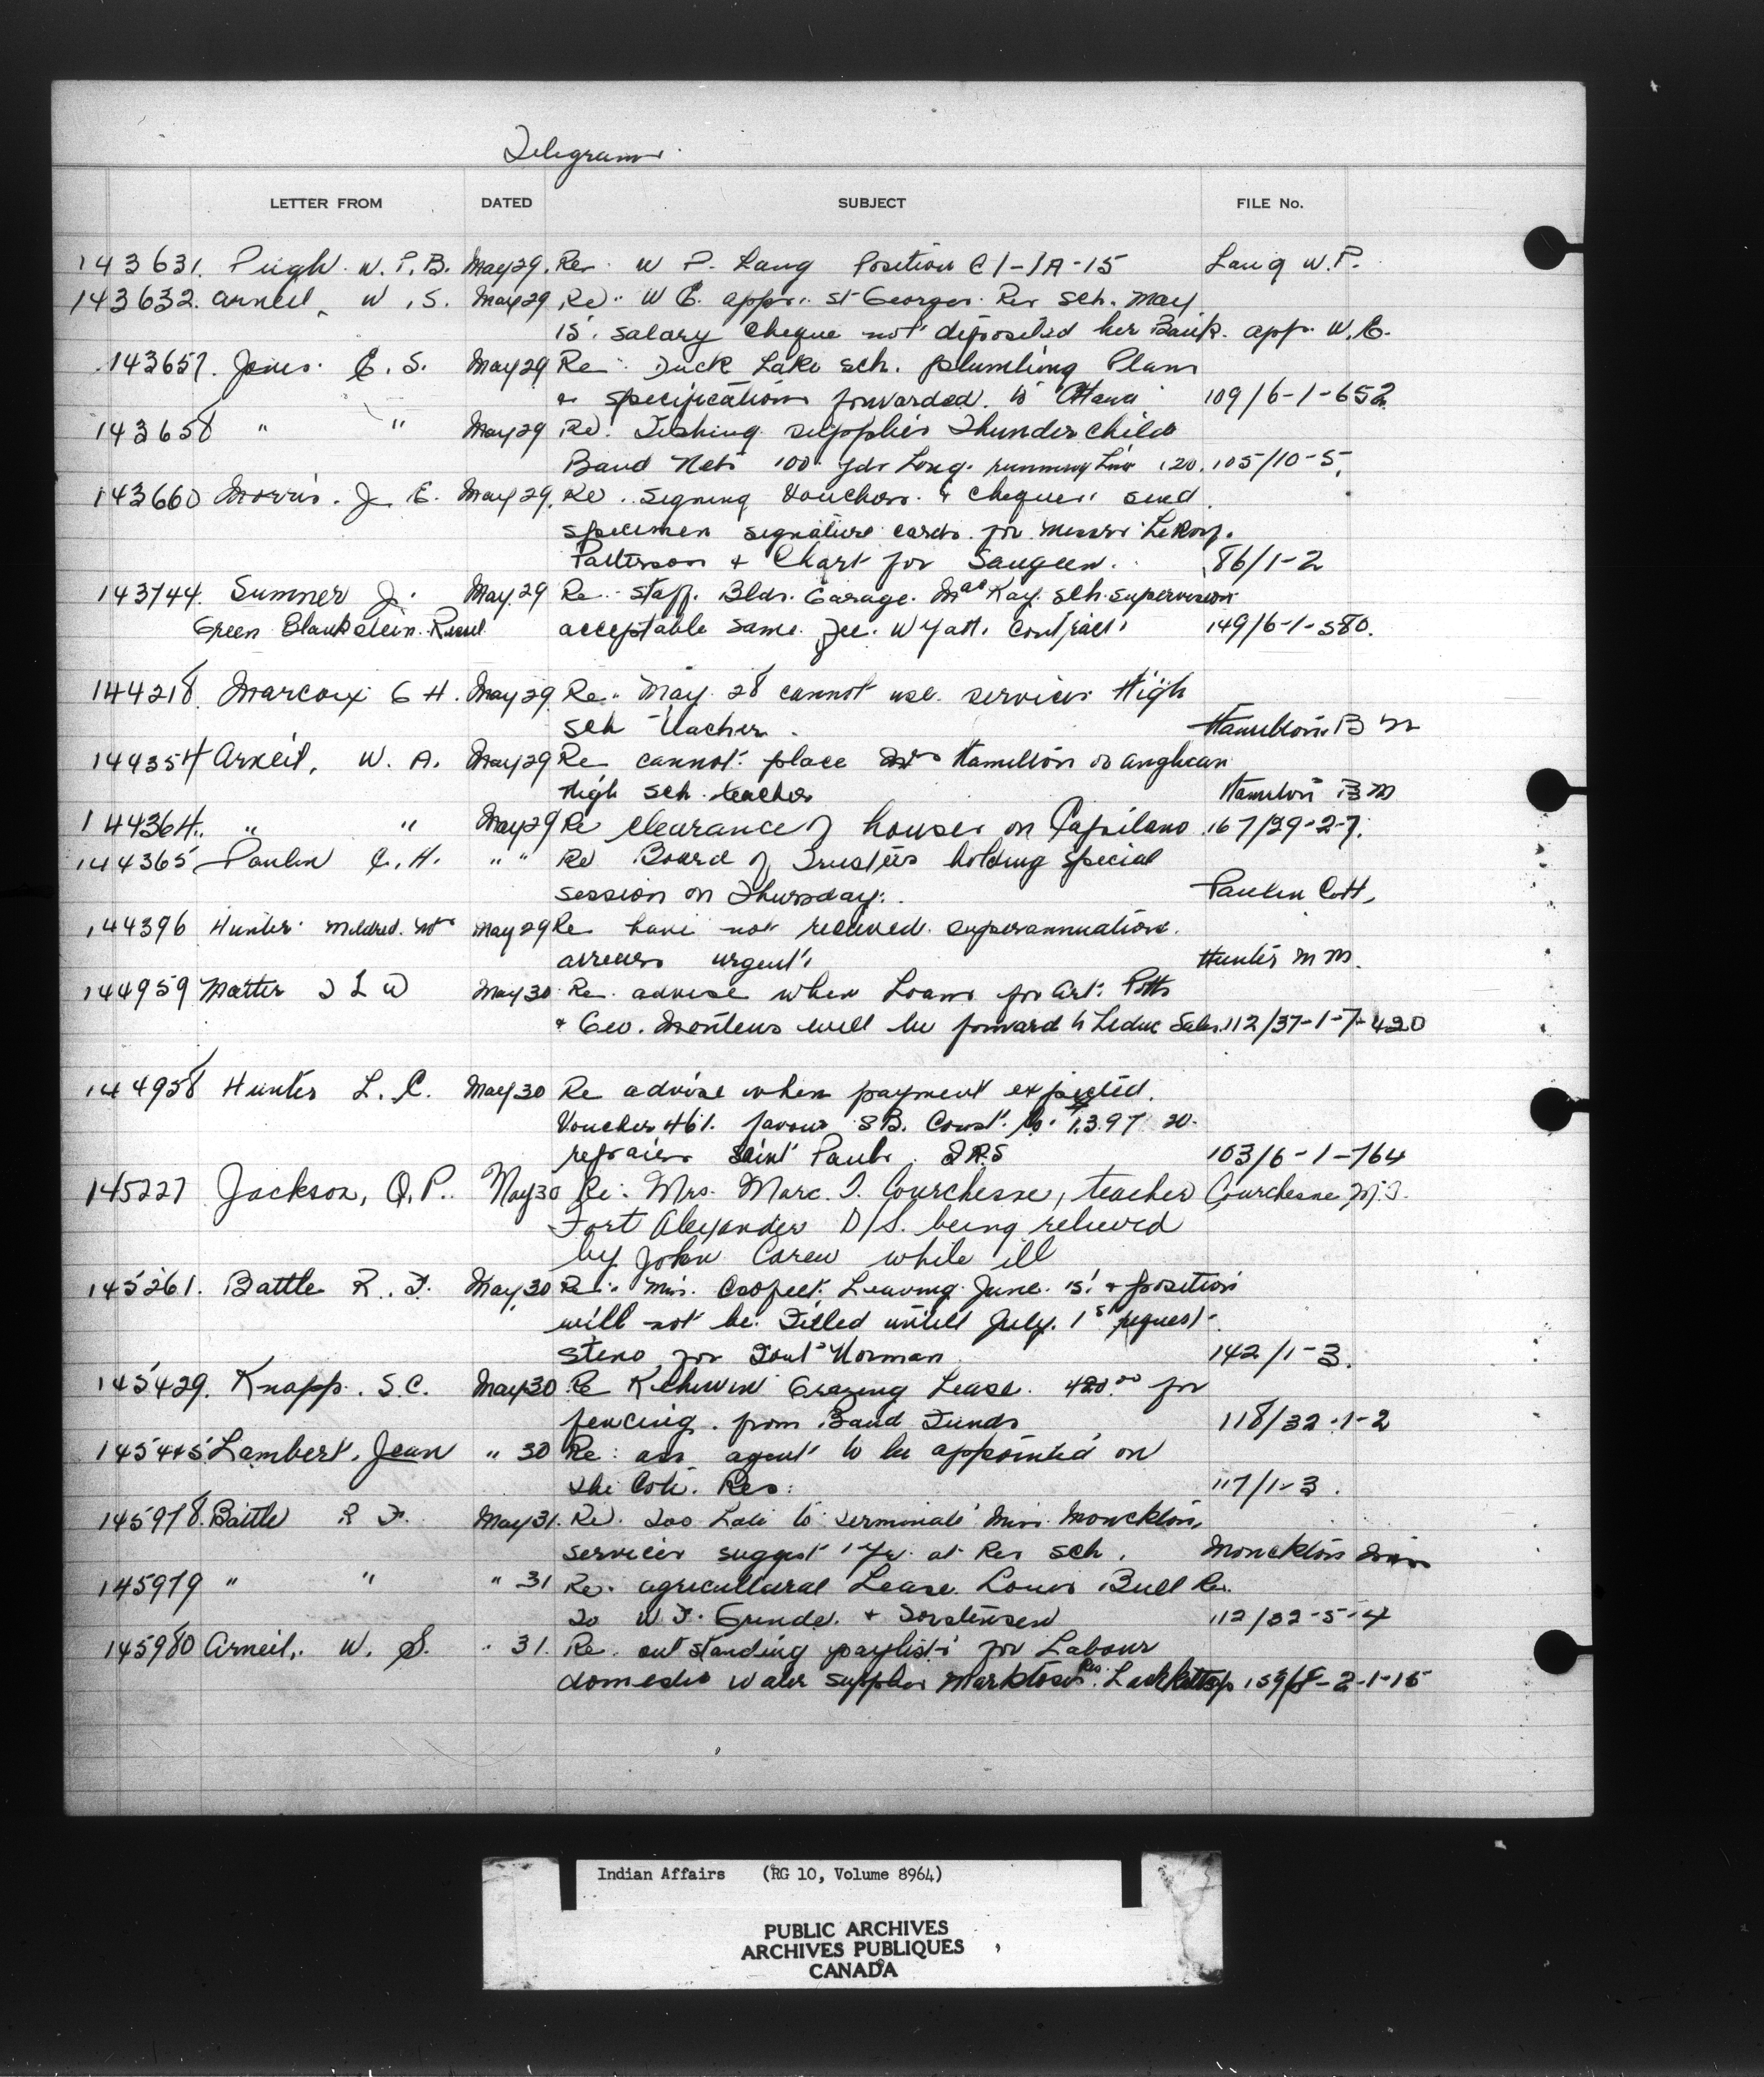 Telegrams
LETTER FROM DATED SUBJECT FILE No.
143631. Pugh W. P. B. May 29. Re: W P. Lang Position C1-1A-15 Lang W.P.
143632. Arneil, W. S. May 29 Re: W E. App. St Georges Res Sch. May
15. salary cheque not deposited her Bank. App. W. E.
143657. Jones E. S. May 29 Re: Duck Lake sch. plumbing Plans
& specifications forwarded to Ottawa 109/6-1-652
143658 " " May 29 Re: Fishing supplies Thunderchild
Band Nets 100 yds Long. running Line 120. 105/10-5.
143660 Morris. J. E. May 29. Re. signing Vouchers & cheques send
specimen signature cards for Messrs LeRoy.
Patterson & Chart for Saugeen. 86/1-2
143744. Sumner J. May 29 Re: Staff. Bldr. Garage. MacKay. sch. supervision
Green Blankstein Russel acceptable same fee. Wyatt. Contract. 149/6-1-580.
144218. Marcoux G H. May 29 Re: May 28 cannot use services High
Sch Teacher. Hamilton B M
144354 Arneil, W. A. May 29 Re cannot place Hamilton as anglican
High sch. teacher Hamilton B M
144364. " " May 29 Re clearance of houses on Capilano 167/29-2-7.
144365 Paulin C. H. " " Re Board of Trustees holding special
session on Thursday. Paulin C.H.
144396 Hunter Mildred. M May 29 Re have not received superannuation
arrears urgent. Hunter M M.
144959 Matter I L W May 30 Re. advise when Loans for Art. Potts
& Geo. Montens will be forward to Leduc Sales. 112/37-1-7-420
144958 Hunter L. C. May 30 Re advise when payment expected.
Voucher 461. favour S B. Const. Co. $1397 20.
repairs Saint Pauls. I R S 103/6-1-764
145227 Jackson, O. P. May 30 Re: Mrs. Marc. T. Courchesne, teacher Courchesne M.T.
Fort Alexander D/S. being relieved
by John Carew while ill
145261. Battle R. F. May 30 Re: Miss. Leaving June. 15. & position
will not be Filled until July. 1st request
steno for Norman. 142/1-3.
145429. Knapp. S. C. May 30 Re Kehiwin Grazing Lease. 420.00 for
fencing. from Band Funds 118/32-1-2
145445 Lambert, Jean " 30 Re: ass. agent to be appointed on
the Cote. Res: 117/1-3.
145978. Battle R F. May 31. Re. Too Late to terminate Miss. Monckton,
services suggest 1 Yr. at Res Sch. Monckton Miss
145979 " " " 31 Re. agricultural Lease Louis Bull Res.
To W F. Grunde. & Sorstensen 112/32-5-4
145980 Arneil,. W. S. " 31. Re. outstanding paylists for Labour
domestic water supplies Marktosis Res. 159/8-2-1-15
Indian Affairs (RG 10, Volume 8964)
PUBLIC ARCHIVES
ARCHIVES PUBLIQUES
CANADA